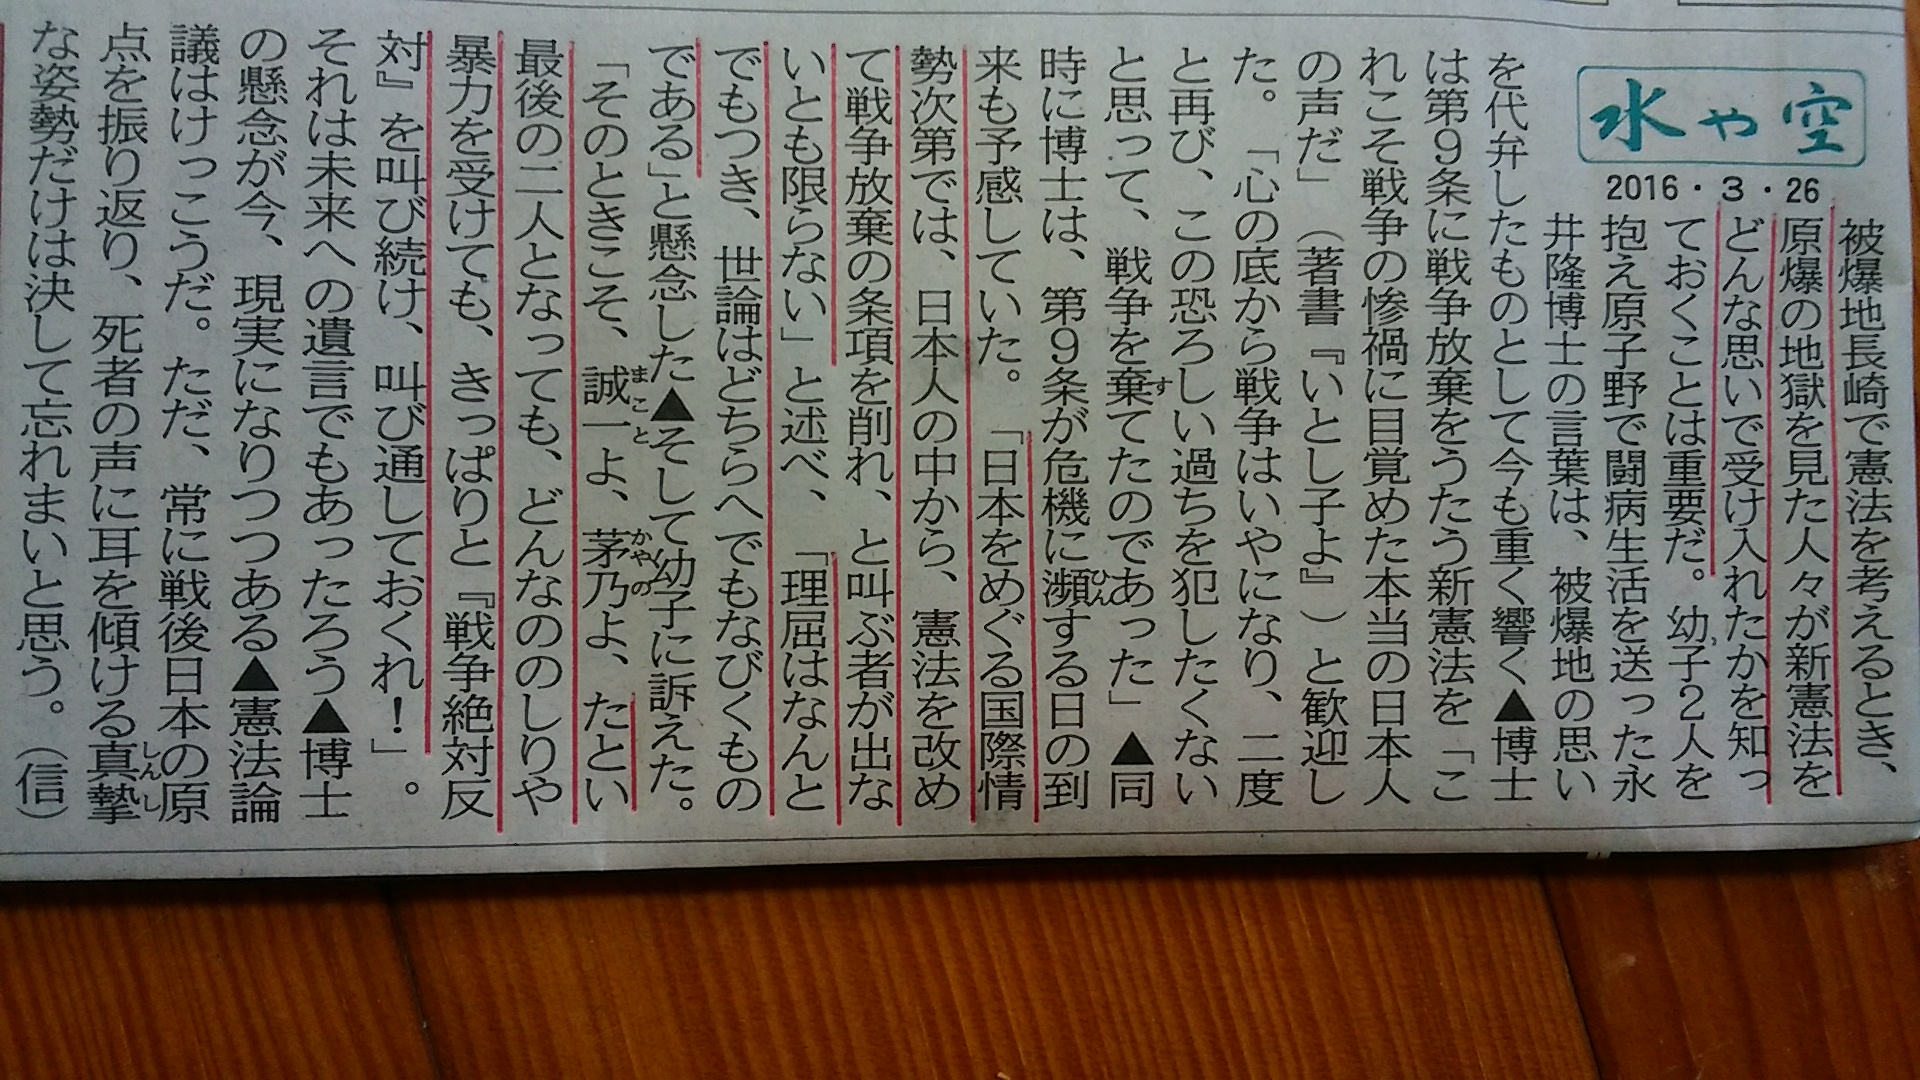 水や空
2016・3・26
被爆地長崎で憲法を考えるとき、
原爆の地獄を見た人々が新憲法を
どんな思いで受け入れたかを知っ
ておくことは重要だ。幼子2人を
抱え原子野で闘病生活を送った永
井隆博士の言葉は、被爆地の思い
を代弁したものとして今も重く響く▲博士
は第9条に戦争放棄をうたう新憲法を「こ
れこそ戦争の惨禍に目覚めた本当の日本人
の声だ」（著書『いとし子よ』）と歓迎し
た。「心の底から戦争はいやになり、二度
と再び、この恐ろしい過ちを犯したくない
と思って、戦争を棄てたのであった」▲同
時に博士は、第9条が危機に瀕する日の到
来も予感していた。「日本をめぐる国際情
勢次第では、日本人の中から、憲法を改め
て戦争放棄の条項を削れ、と叫ぶ者が出な
いとも限らない」と述べ、「理屈はなんと
でもつき、世論はどちらへでもなびくもの
である」と懸念した▲そして幼子に訴えた。
「そのときこそ、誠一よ、茅乃よ、たとい
最後の二人となっても、どんなののしりや
暴力を受けても、きっぱりと『戦争絶対反
対』を叫び続け、叫び通しておくれ！」。
それは未来への遺言でもあったろう▲博士
の懸念が今、現実になりつつある▲憲法論
議はけっこうだ。ただ、常に戦後日本の原
点を振り返り、死者の声に耳を傾ける真摯
な姿勢だけは決して忘れまいと思う。（信）